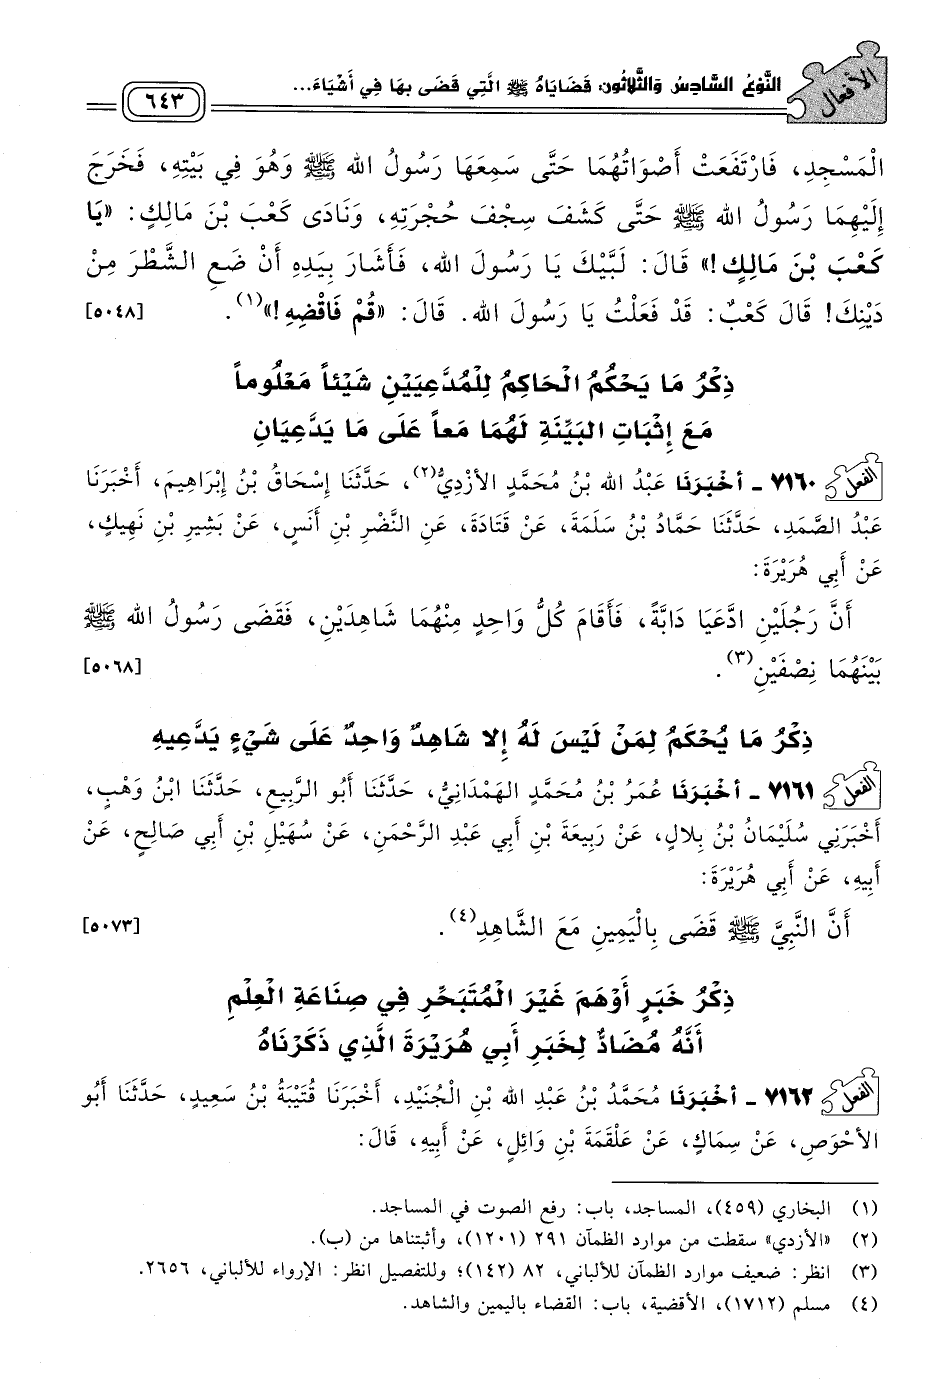 الأفعال
النَّوْعُ السَّادِسُ وَالثَّلَاثُونَ: قَضَايَاهُ ﷺ الَّتِي قَضَى بِهَا فِي أَشْيَاءَ...
٦٤٣
الْمَسْجِدِ، فَارْتَفَعَتْ أَصْوَاتُهُمَا حَتَّى سَمِعَهَا رَسُولُ الله ﷺ وَهُوَ فِي بَيْتِهِ، فَخَرَجَ
إِلَيْهِمَا رَسُولُ الله ﷺ حَتَّى كَشَفَ سِجْفَ حُجْرَتِهِ، وَنَادَى كَعْبَ بْنَ مَالِكٍ: «يَا
كَعْبَ بْنَ مَالِكٍ!» قَالَ: لَبَّيْكَ يَا رَسُولَ الله، فَأَشَارَ بِيَدِهِ أَنْ ضَعِ الشَّطْرَ مِنْ
دَيْنِكَ! قَالَ كَعْبٌ: قَدْ فَعَلْتُ يَا رَسُولَ الله. قَالَ: «قُمْ فَاقْضِهِ!»(١). [٥٠٤٨]
ذِكْرُ مَا يَحْكُمُ الْحَاكِمُ لِلْمُدَّعِيَيْنِ شَيْئاً مَعْلُوماً
مَعَ إِثْبَاتِ البَيِّنَةِ لَهُمَا مَعاً عَلَى مَا يَدَّعِيَانِ
الفعل ٧١٦٠ ـ أخْبَرَنَا عَبْدُ الله بْنُ مُحَمَّدٍ الأَزْدِيُّ(٢)، حَدَّثَنَا إِسْحَاقُ بْنُ إِبْرَاهِيمَ، أَخْبَرَنَا
عَبْدُ الصَّمَدِ، حَدَّثَنَا حَمَّادُ بْنُ سَلَمَةَ، عَنْ قَتَادَةَ، عَنِ النَّضْرِ بْنِ أَنَسٍ، عَنْ بَشِيرِ بْنِ نَهِيكٍ،
عَنْ أَبِي هُرَيْرَةَ:
أَنَّ رَجُلَيْنِ ادَّعَيَا دَابَّةً، فَأَقَامَ كُلُّ وَاحِدٍ مِنْهُمَا شَاهِدَيْنِ، فَقَضَى رَسُولُ الله ﷺ
بَيْنَهُمَا نِصْفَيْنِ(٣). [٥٠٦٨]
ذِكْرُ مَا يُحْكَمُ لِمَنْ لَيْسَ لَهُ إِلا شَاهِدٌ وَاحِدٌ عَلَى شَيْءٍ يَدَّعِيهِ
الفعل ٧١٦١ ـ أخْبَرَنَا عُمَرُ بْنُ مُحَمَّدٍ الهَمْدَانِيُّ، حَدَّثَنَا أَبُو الرَّبِيعِ، حَدَّثَنَا ابْنُ وَهْبٍ،
أَخْبَرَنِي سُلَيْمَانُ بْنُ بِلالٍ، عَنْ رَبِيعَةَ بْنِ أَبِي عَبْدِ الرَّحْمَنِ، عَنْ سُهَيْلِ بْنِ أَبِي صَالِحٍ، عَنْ
أَبِيهِ، عَنْ أَبِي هُرَيْرَةَ:
أَنَّ النَّبِيَّ ﷺ قَضَى بِالْيَمِينِ مَعَ الشَّاهِدِ(٤). [٥٠٧٣]
ذِكْرُ خَبَرٍ أَوْهَمَ غَيْرَ الْمُتَبَحِّرِ فِي صِنَاعَةِ الْعِلْمِ
أَنَّهُ مُضَادٌّ لِخَبَرِ أَبِي هُرَيْرَةَ الَّذِي ذَكَرْنَاهُ
الفعل ٧١٦٢ ـ أخْبَرَنَا مُحَمَّدُ بْنُ عَبْدِ الله بْنِ الْجُنَيْدِ، أَخْبَرَنَا قُتَيْبَةُ بْنُ سَعِيدٍ، حَدَّثَنَا أَبُو
الأَحْوَصِ، عَنْ سِمَاكٍ، عَنْ عَلْقَمَةَ بْنِ وَائِلٍ، عَنْ أَبِيهِ، قَالَ:
(١) البخاري (٤٥٩)، المساجد، باب: رفع الصوت في المساجد.
(٢) «الأزدي» سقطت من موارد الظمآن ٢٩١ (١٢٠١)، وأثبتناها من (ب).
(٣) انظر: ضعيف موارد الظمآن للألباني، ٨٢ (١٤٢)؛ وللتفصيل انظر: الإرواء للألباني، ٢٦٥٦.
(٤) مسلم (١٧١٢)، الأقضية، باب: القضاء باليمين والشاهد.